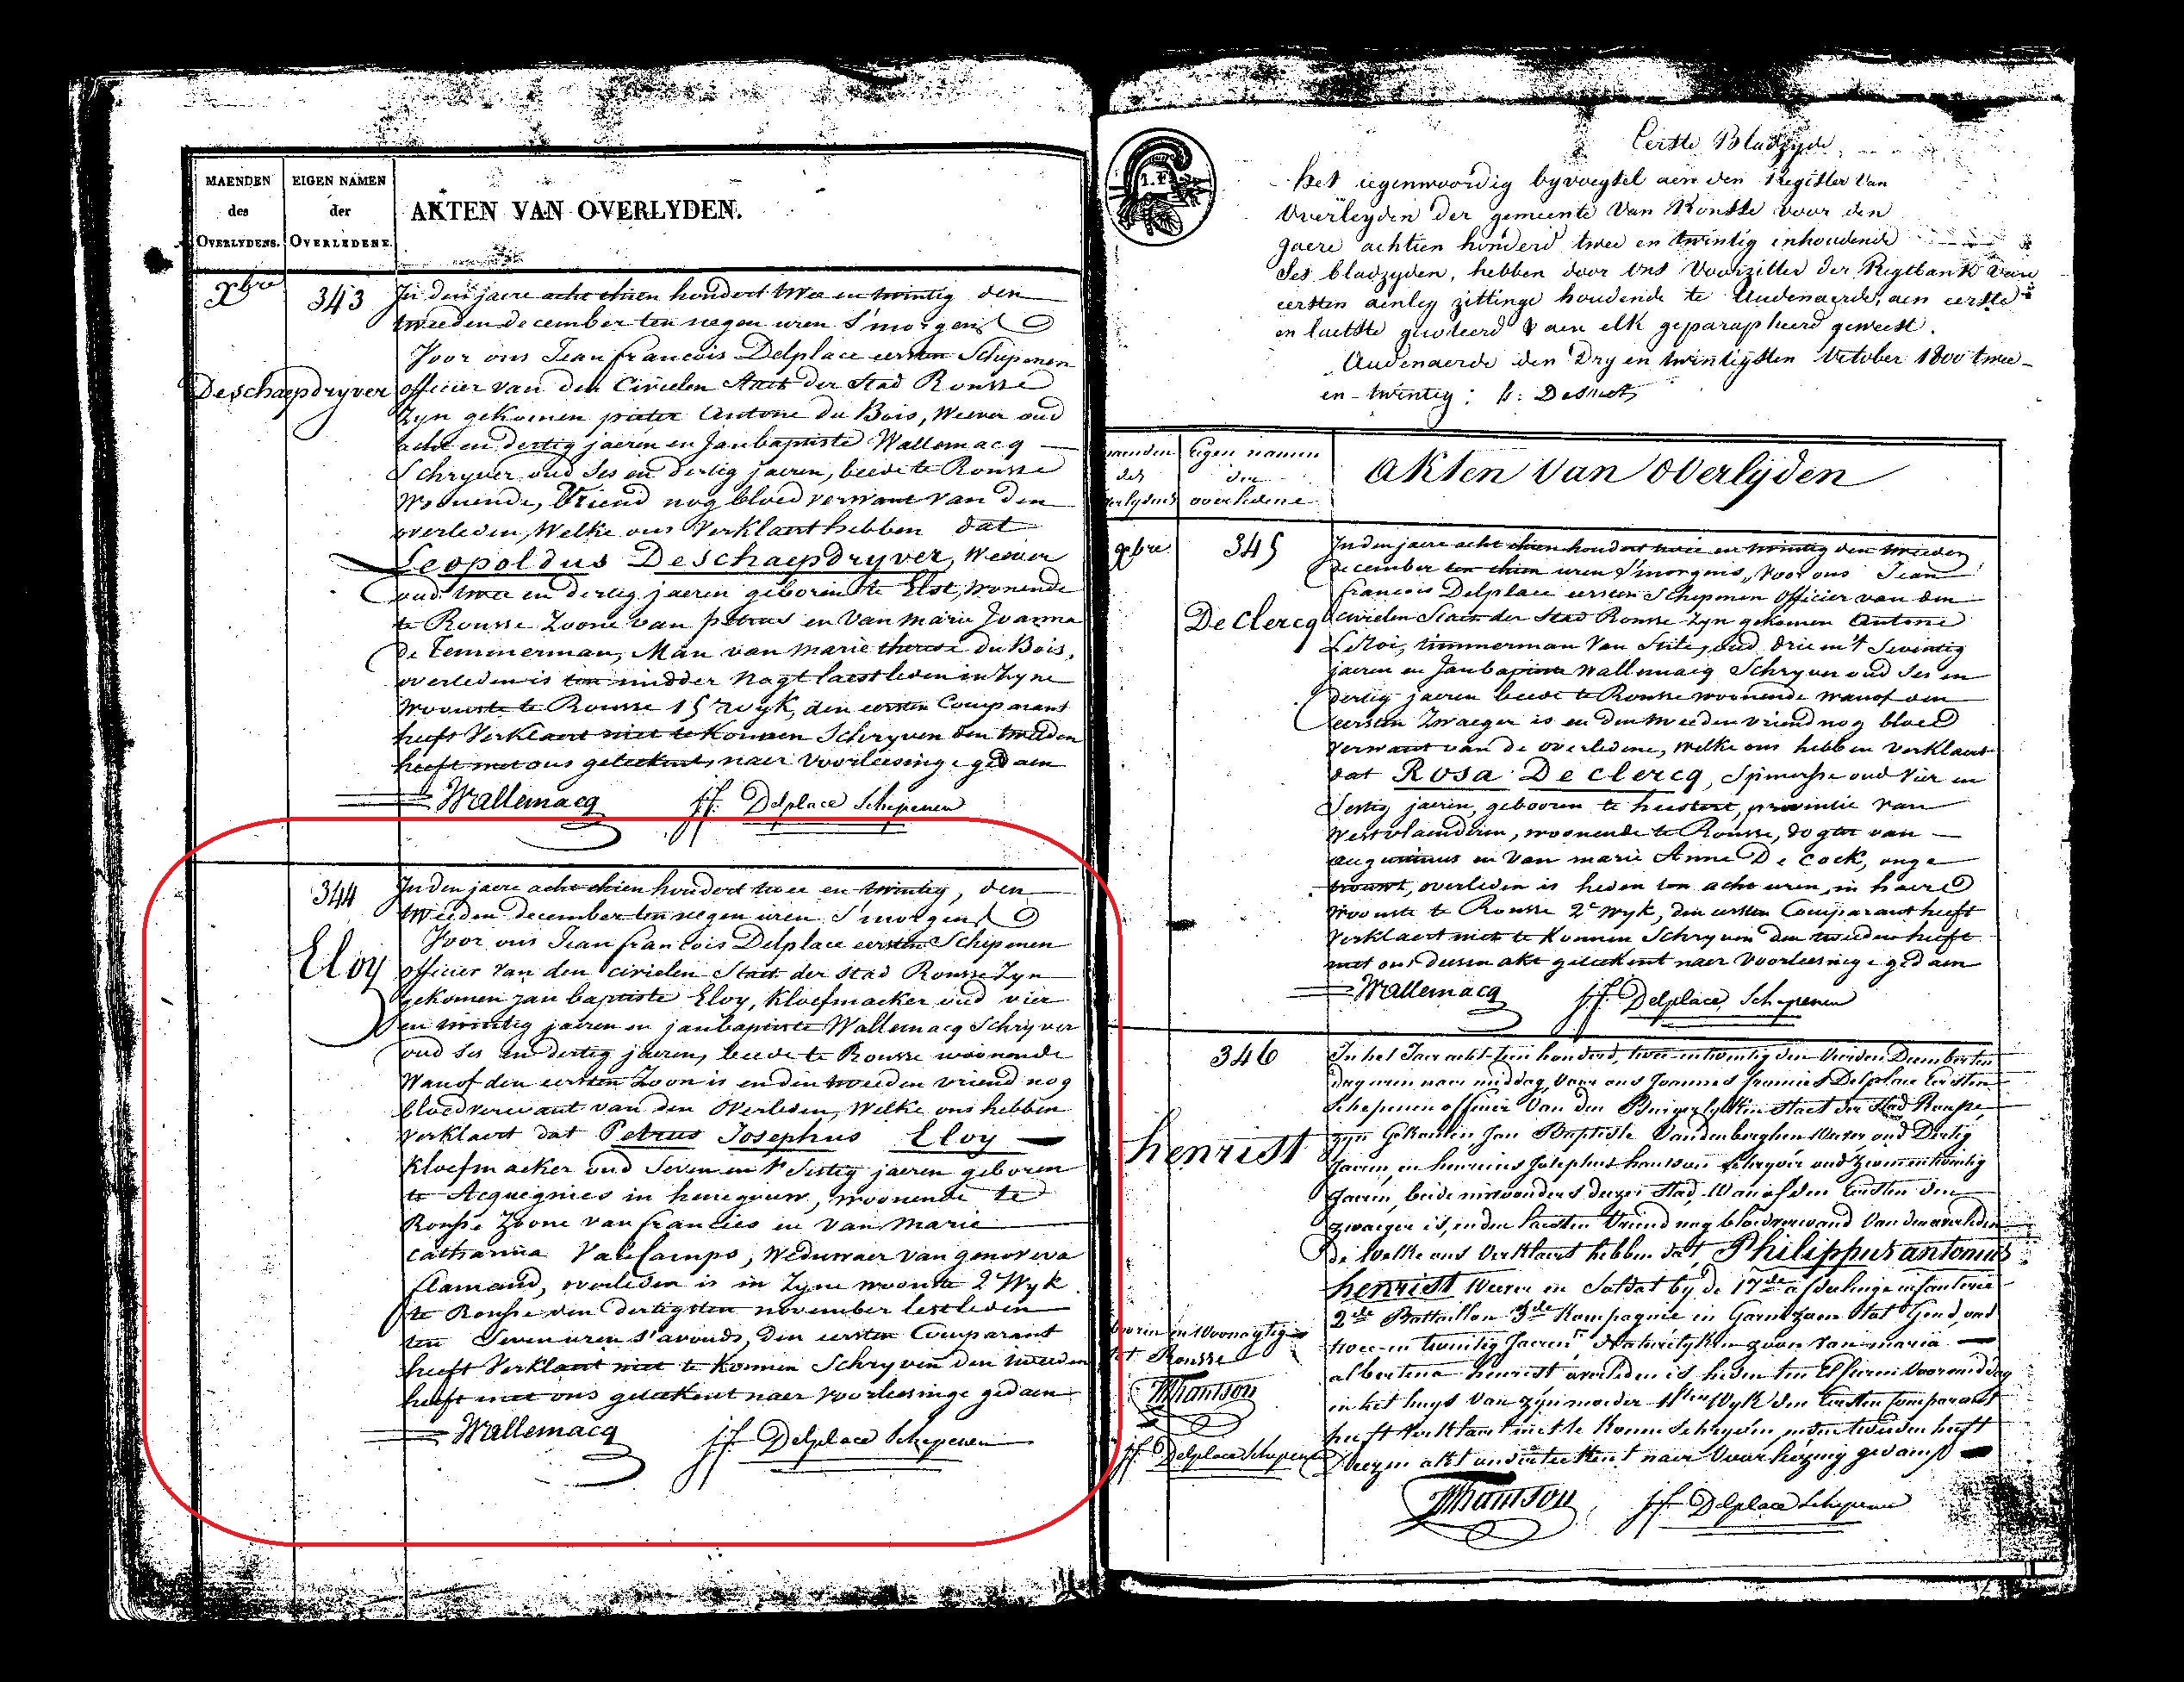 MAENDEN
des
OVERLYDENS.
EIGEN NAMEN
der
OVERLEDENE.
AKTEN VAN OVERLYDEN.
Xbre
343
Deschaepdryver
In den jaere acht thien hondert twee en twintig den
tweeden december ten negen uren S'morgens
Voor ons Jean francois Delplace eersten Schepenen
officier van den Civielen Staet der Stad Rousse
Zyn gekomen pieter Antone du Bois, Wever oud
acht en dertig jaeren en Janbaptiste Wallemacq
Schryver oud Ses en dertig jaeren, beede te Rousse
Woonende, Vriend nog bloed verwant van den
overleden, Welke ons Verklaert hebben dat
Leopoldus Deschaepdryver, Wever
oud twee en dertig jaeren geboren te Elst, wonende
te Rousse Zoone van petrus en Van marie Joanna
de Temmerman, Man van marie therese du Bois,
overleden is ten midder nagt laest leden in Zyne
Woonste te Rousse 15 Wyk, den eersten Comparant
heeft Verklaert niet te Konnen Schryven den tweeden
heeft met ons geteekent, naer Voorleesinge gedaen
Wallemacq jf. Delplace Schepenen
344
Eloy
In den jaere acht thien hondert twee en twintig, den
tweeden december ten negen uren S'morgens
Voor ons Jean francois Delplace eersten Schepenen
officier van den civielen Staet der stad Rousse Zyn
gekomen jan baptiste Eloy, Kloefmaeker oud vier
en twintig jaeren en janbaptiste Wallemacq Schryver
oud Ses en dertig jaeren, beede te Rousse woonende
Wanof den eersten Zoon is en den tweeden vriend nog
bloedverwant van den Overleden, Welke ons hebben
verklaert dat Petrus Josephus Eloy
Kloefmaeker oud Seven en 't Sestig jaeren geboren
te Acquegnies in henegouw, woonende te
Rousse Zoone van francies en van marie
catharina Vancamps, Weduwaer van genoveva
flamand, overleden is in Zyne woonste 2e Wyk
te Rousse den dertigsten november lestleden
ten Seven uren s'avonds, den eersten Comparant
heeft Verklaert niet te Konnen Schryven den tweeden
heeft met ons geteekent naer Voorleesinge gedaen
Wallemacq jf. Delplace Schepenen
Eerste Bladzyde
het iegenwoordig byvoegsel aen den Register Van
Overleyden der gemeente Van Ronsse voor den
Jaere achtien honderd twee en twintig inhoudende
Ses bladzyden, hebben door Ons Voorzitter der Regtbank van
eersten aenleg zittinge houdende te Audenaerde, aen eerste
en laetste gecoteerd & aen elk geparapheerd geweest.
Audenaerde den Dry en twintigsten October 1800 twee-
en-twintig:
Eigen namen
der
overledene
akten van overlyden
345
De Clercq
In den jaere acht thien hondert twee en twintig den tweeden
december ten thien uren S'morgens, Voor ons Jean
francois Delplace eersten Schepenen Officier van den
civielen Staet der Stad Rousse Zyn gekomen Antone
Leroi, timmerman Van Stile, oud drie en 't Seventig
jaeren en Janbaptiste Wallemacq Schryver oud Ses en
dertig jaeren beede te Rousse woonende wanof den
eersten Zwaeger is en den tweeden vriend nog bloed
verwant van de overledene, Welke ons hebben verklaert
dat Rosa De clercq, Spinesse oud Vier en
Sestig jaeren, gebooren te heestert, provintie van
Westvlaenderen, woonende te Rousse, dogter van
augustinus en Van marie Anne De Cock, onge
trouwt, overleden is heden ten acht uren, in haere
Woonste te Rousse 2e Wyk, den eersten Comparant heeft
Verklaert niet te Konnen Schryven den tweeden heeft
met ons deesen akt geteekent naer Voorleesinge gedaen
Wallemacq jf. Delplace, Schepenen
346
henrist
In het Jaer acht-tien honderd, twee-en twintig den tweeden December ten
dry uren naer middag, Voor ons Joannes francies Delplace Eersten
Schepenen officier Van den Burgerlyken Staet der Stad Rousse,
zyn Gekomen Jan Baptiste Vandenberghen Wever oud Dertig
Jaeren, en Josephus hantson Schryver oud Zeven en twintig
Jaeren, beide inwoonders deezer Stad, Wanof den Eersten den
zwaeger is, en den laesten Vriend nog bloedverwand Van den overleden
de Welke ons Verklaert hebben dat, Philippus antonius
henrist Wever en Soldat by de 17de afdeelinge infanterie
2de Battaillon 3de Kompagnie in Garnizoen tot Gend, oud
twee-en twintig Jaeren, Natuerlyken zoon Van maria
albertina henrist overleden is heden ten Elf uren Voormiddag
in het huys Van zyn moeder Wyk den Eersten Comparant
heeft Verklaert niet te Konnen Schryven, en den tweeden heeft
deezen akt onderteekent naer Voorlezing gedaen
woonagtig
tot Rousse
Jf. Delplace Schepenen
Hantson jf. Delplace Schepenen